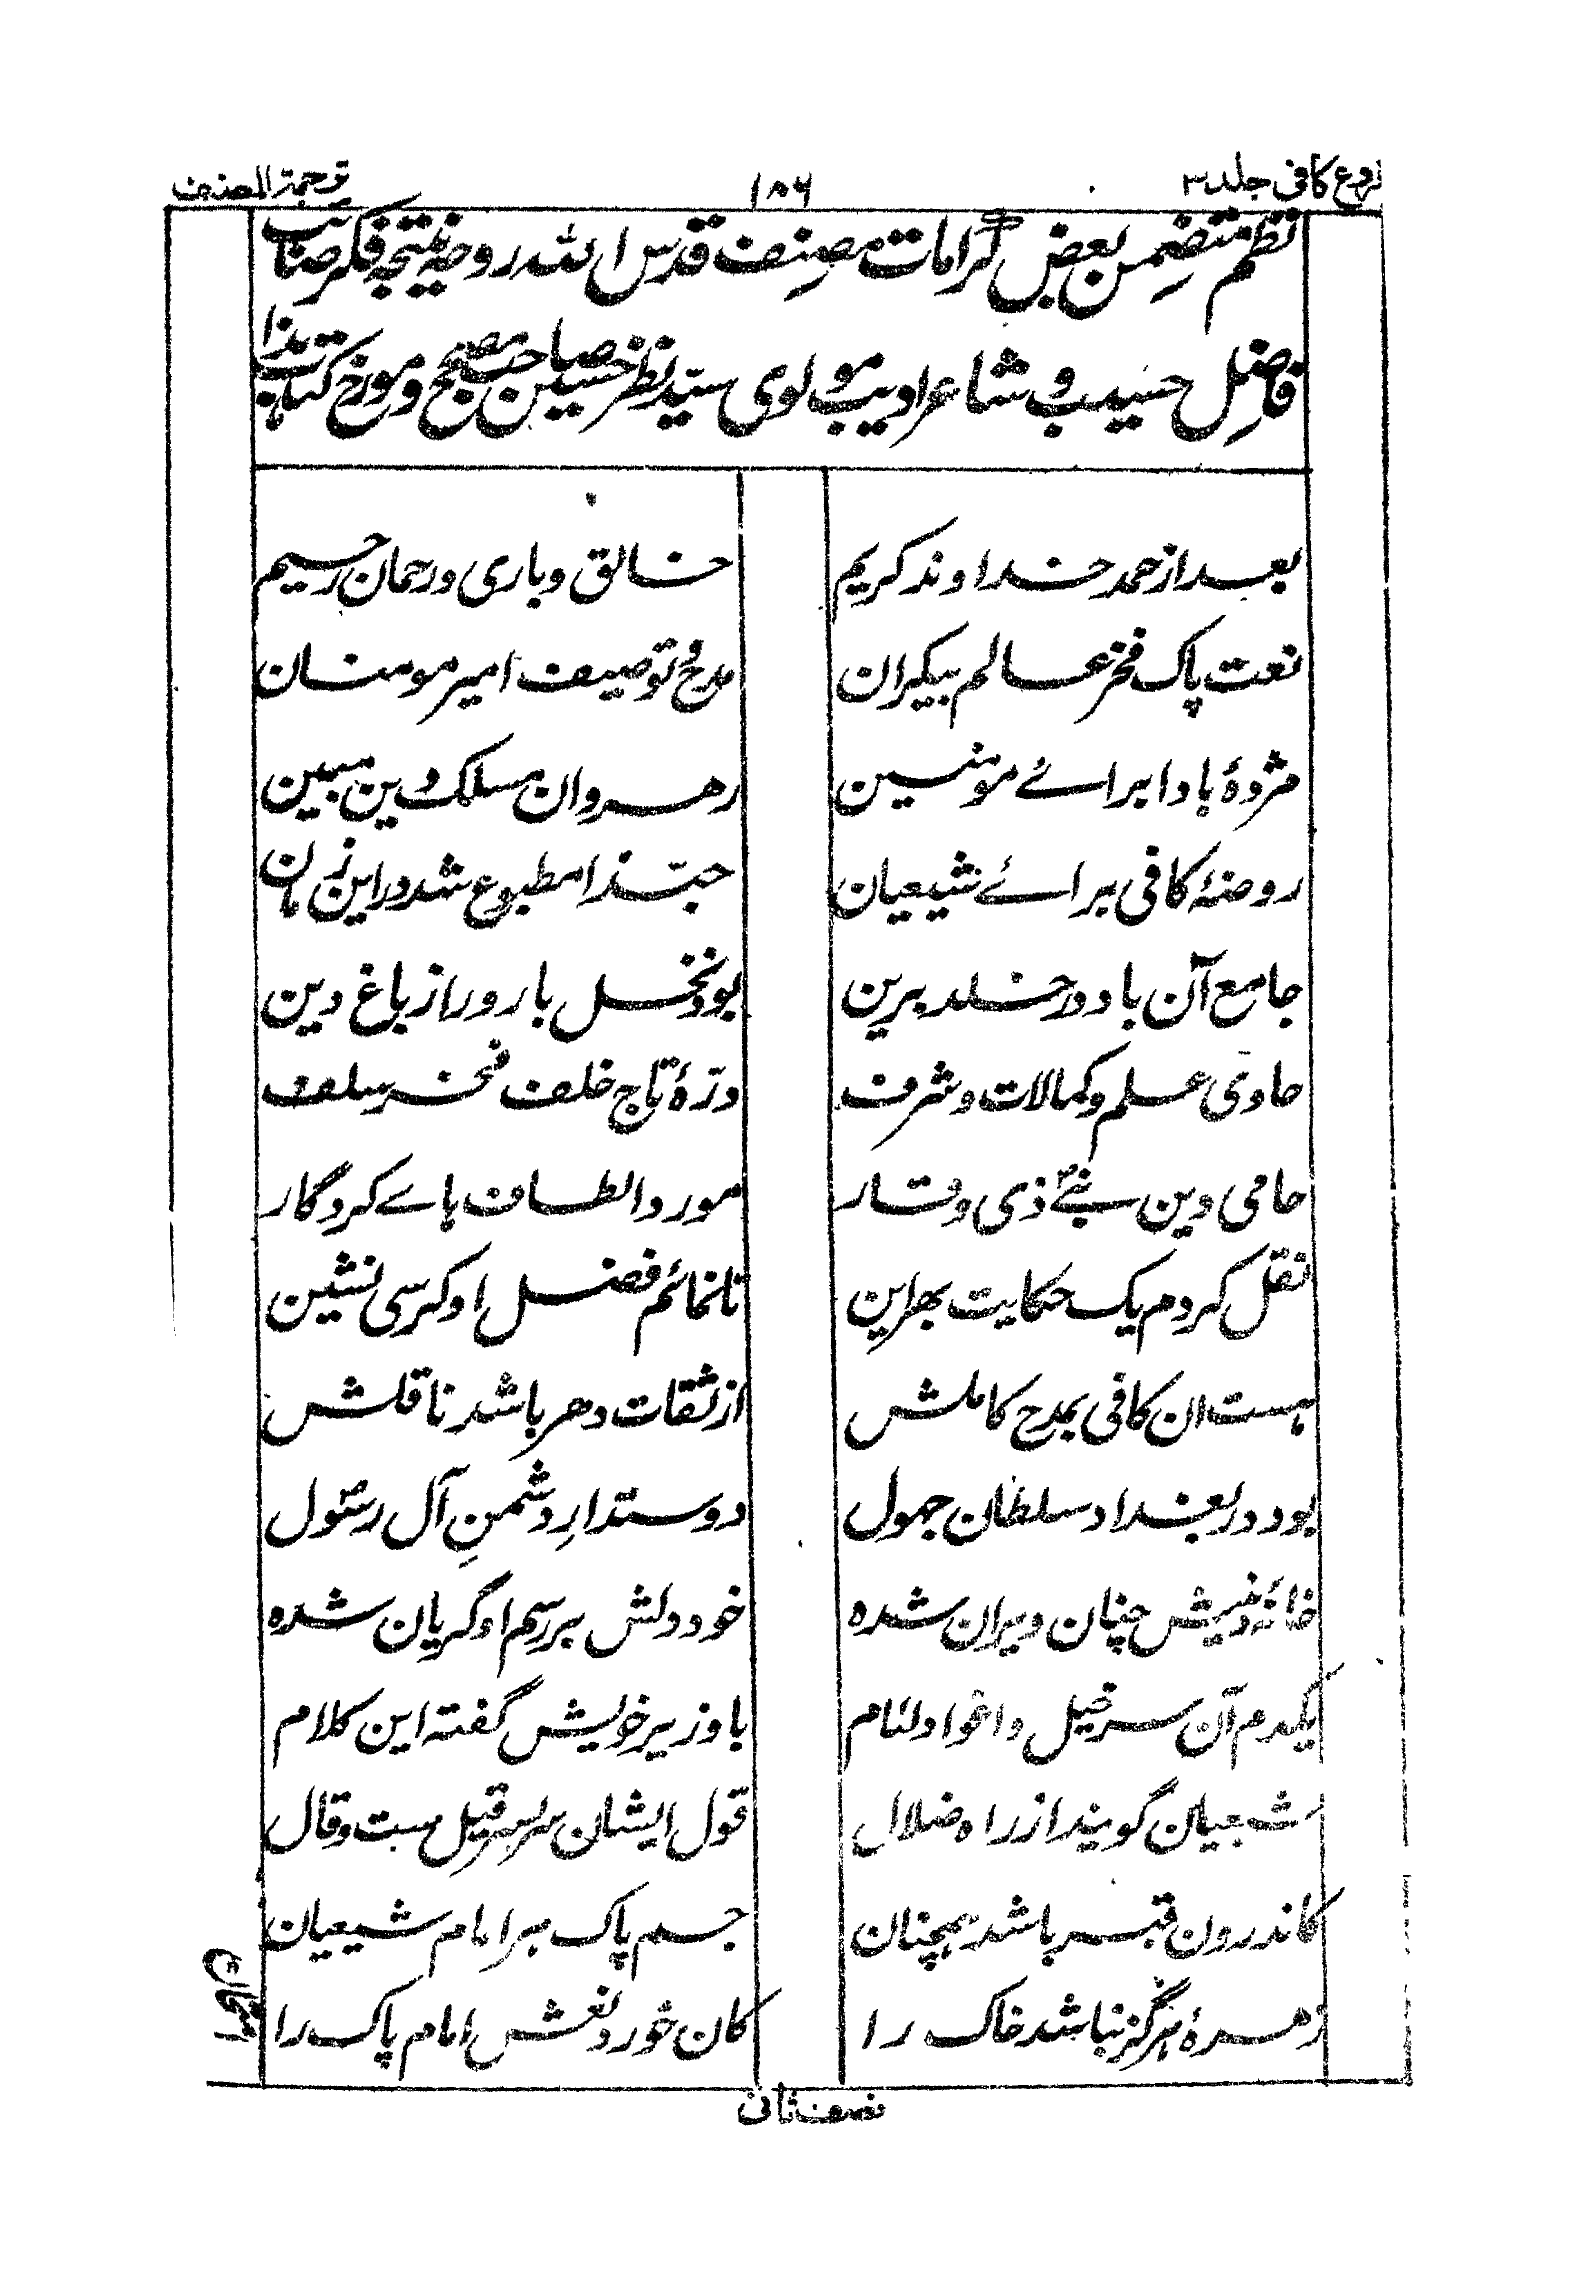 فروع کافی جلد ۳ ۱۸۶ ترجمة المصنف
نظم متضمن بعض کرامات مصنف قدس اللہ روحہ نتیجۂ فکر صائب
فاضل حسیب و شاعر ادیب مولوی سید نظر حسین صاحب مصحح و مورخ کتاب ہذا
بعد از حمد خداوند کریم خالق و باری و رحمان رحیم
نعت پاک فخر عالم بیکران مدح توصیف امیر مومنان
مژدۂ بادا برائے مومنین رهروان مسلک دین مبین
روضۂ کافی برائے شیعیان حبّذا مطبوع شد در این زمان
جامع آن باد در خلد برین بود نخل بارور از باغ دین
حاوی علم و کمالات و شرف درّۂ تاج خلف فخر سلف
حامی دین نبیّ ذی وقار مورد الطاف ہاے کردگار
نقل کردم یک حکایت بهر این تا نمائم فضل او کرسی نشین
ہست ان کافی بمدح کاملش از ثقات دهر باشد ناقلش
بود در بغداد سلطان جهول دوستدارِ دشمنِ آل رسول
خانۂ دینش چنان ویران شده خود دلش بر رسم او گریان شده
یکدم آن سرخیل و اغواد لئام با وزیر خویش گفته این کلام
شیعیان گویند از راه ضلال قول ایشان سربسر قیل ست و قال
کاندرون قبر باشد ہمچنان جسم پاک ہر امام شیعیان
زهرۂ ہرگز نباشد خاک را کان خورد نعش امام پاک را
نصف ثانی